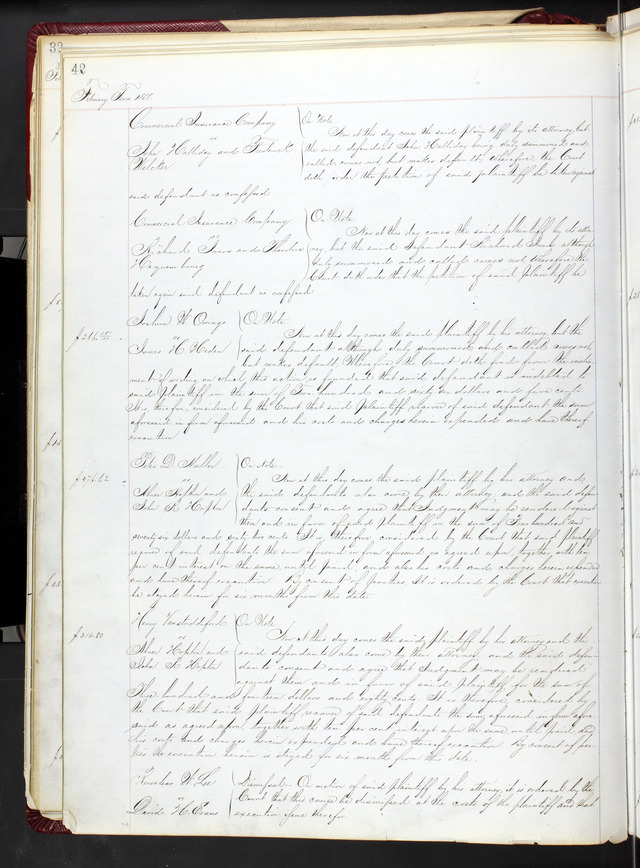 32
42
February Term 1877
Commercial Insurance Company
vs
John Halliday and Frederick
On Note
Now at this day comes the said plaintiff by its attorney but
the said defendant John Halliday being duly summoned and
called comes not but makes default therefore the Court
doth order the petition of said plaintiff be taken against
said defendant as confessed
Commercial Insurance Company
vs
Richards and Theodore
On Note
Now at this day comes the said plaintiff by its attor-
ney, but the said defendant Richards although
duly summoned and called comes not therefore the
Court doth order that the petition of said Plaintiff be
taken again said defendant as confessed
Joshua W Owings
vs
James H
On Note
$265
Now at this day comes the said plaintiff by his attorney but the
said defendant although duly summoned and called comes not
but makes default. Wherefore the Court doth find from the instru-
ment of writing on which this action is founded that said defendant is indebted to
said Plaintiff in the sum of Two hundred and sixty dollars and five cents
It is therefore considered by the Court that said plaintiff recover of said defendant the sum
aforesaid in form aforesaid and his costs and charges herein expended and have thereof
execution
Peter D
vs
and
John R Hepler
On Note
$576.62
Now at this day comes the said plaintiff by his attorney and
the said defendants also come by their attorney and the said defen-
dants consent and agree that Judgment may be rendered against
them and in favor of said Plaintiff in the sum of Five hundred and
seventy six dollars and sixty two cents It is therefore considered by the Court that said plaintiff
recover of said defendants the sum aforesaid in form aforesaid as agreed upon together with ten
per cent interest on the same until paid and also his costs and charges herein expended
and have thereof execution By consent of parties it is ordered by the Court that execution
be stayed herein for six months from this date
Henry
vs
Hepler and
John R Hepler
On Note
$314.80
Now at this day comes the said plaintiff by his attorney and the
said defendants also come by their attorney and the said defen-
dants consent and agree that Judgment may be rendered
against them and in favor of said plaintiff for the sum of
Three hundred and fourteen dollars and eighty cents It is therefore considered by
the Court that said plaintiff recover of said defendants the sum aforesaid in form afore
said as agreed upon together with ten per cent interest upon the same until paid and
his costs and charges herein expended and have thereof execution By consent of par-
ties the execution herein is stayed for six months from this date
W Lee
vs
David H Evans
Dismissed. On motion of said plaintiff by his attorney, it is ordered by the
Court that this cause be dismissed at the costs of the plaintiff and that
execution issue therefor